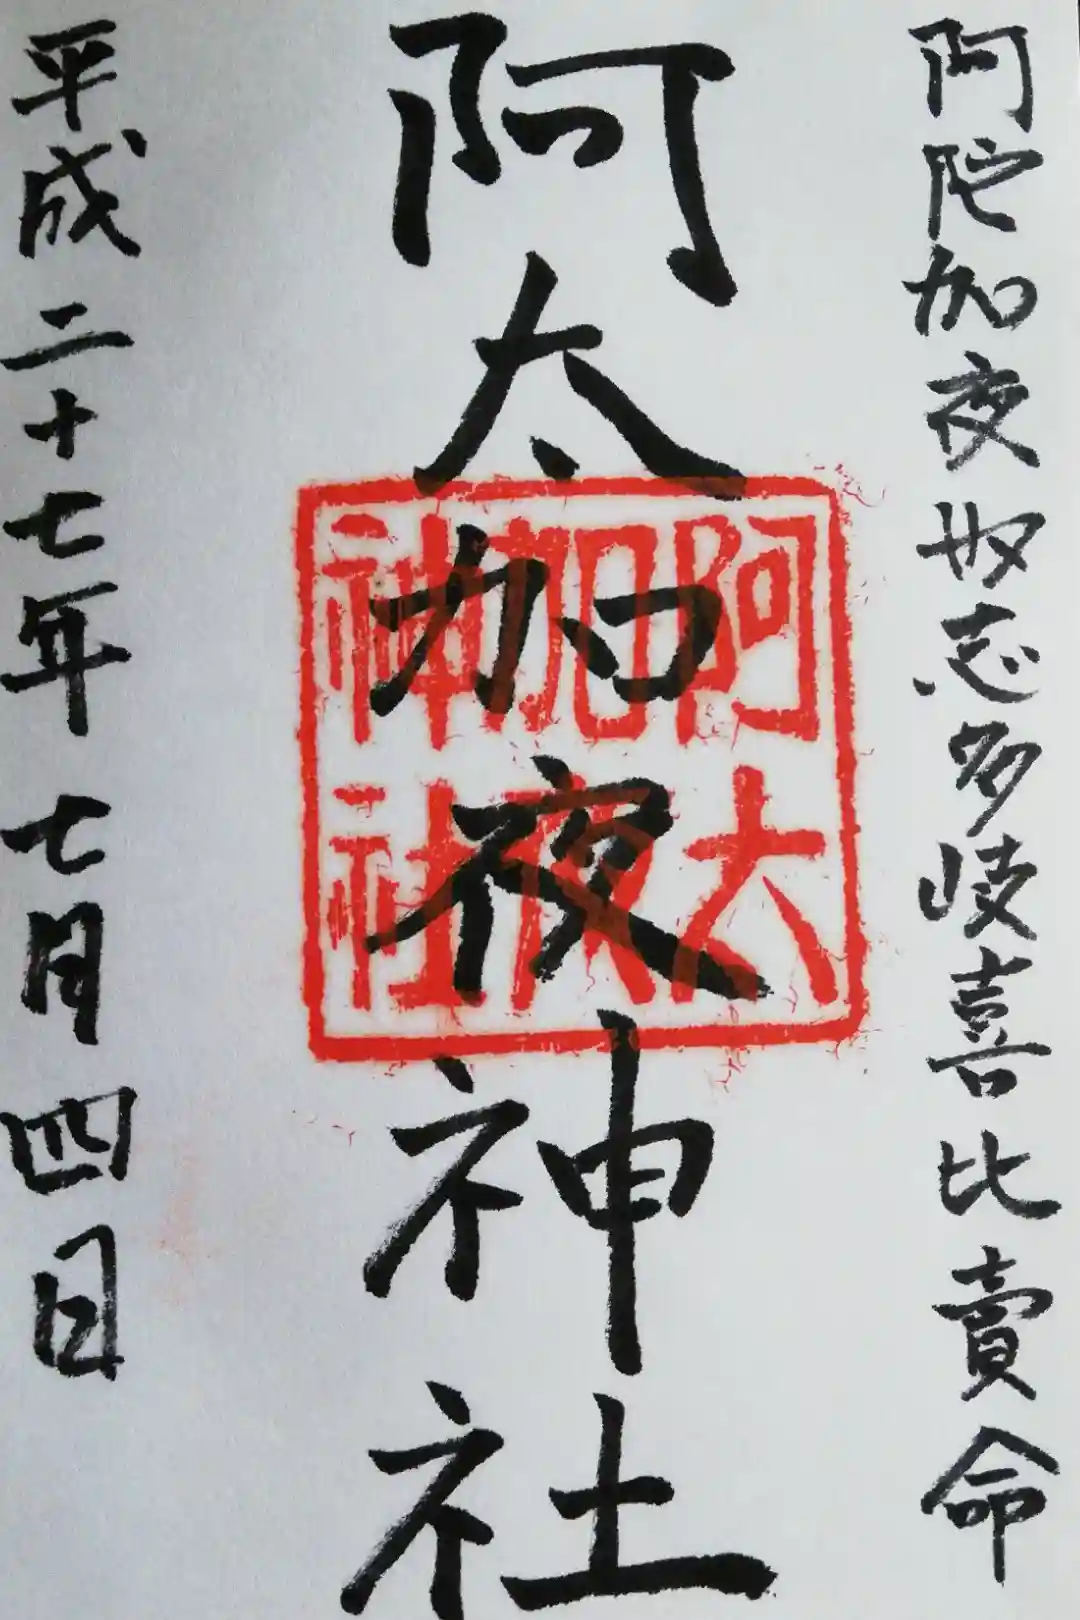 阿陀加夜奴志多岐喜比賣命
阿太加夜神社
阿太
加夜
神社
平成二十七年七月四日